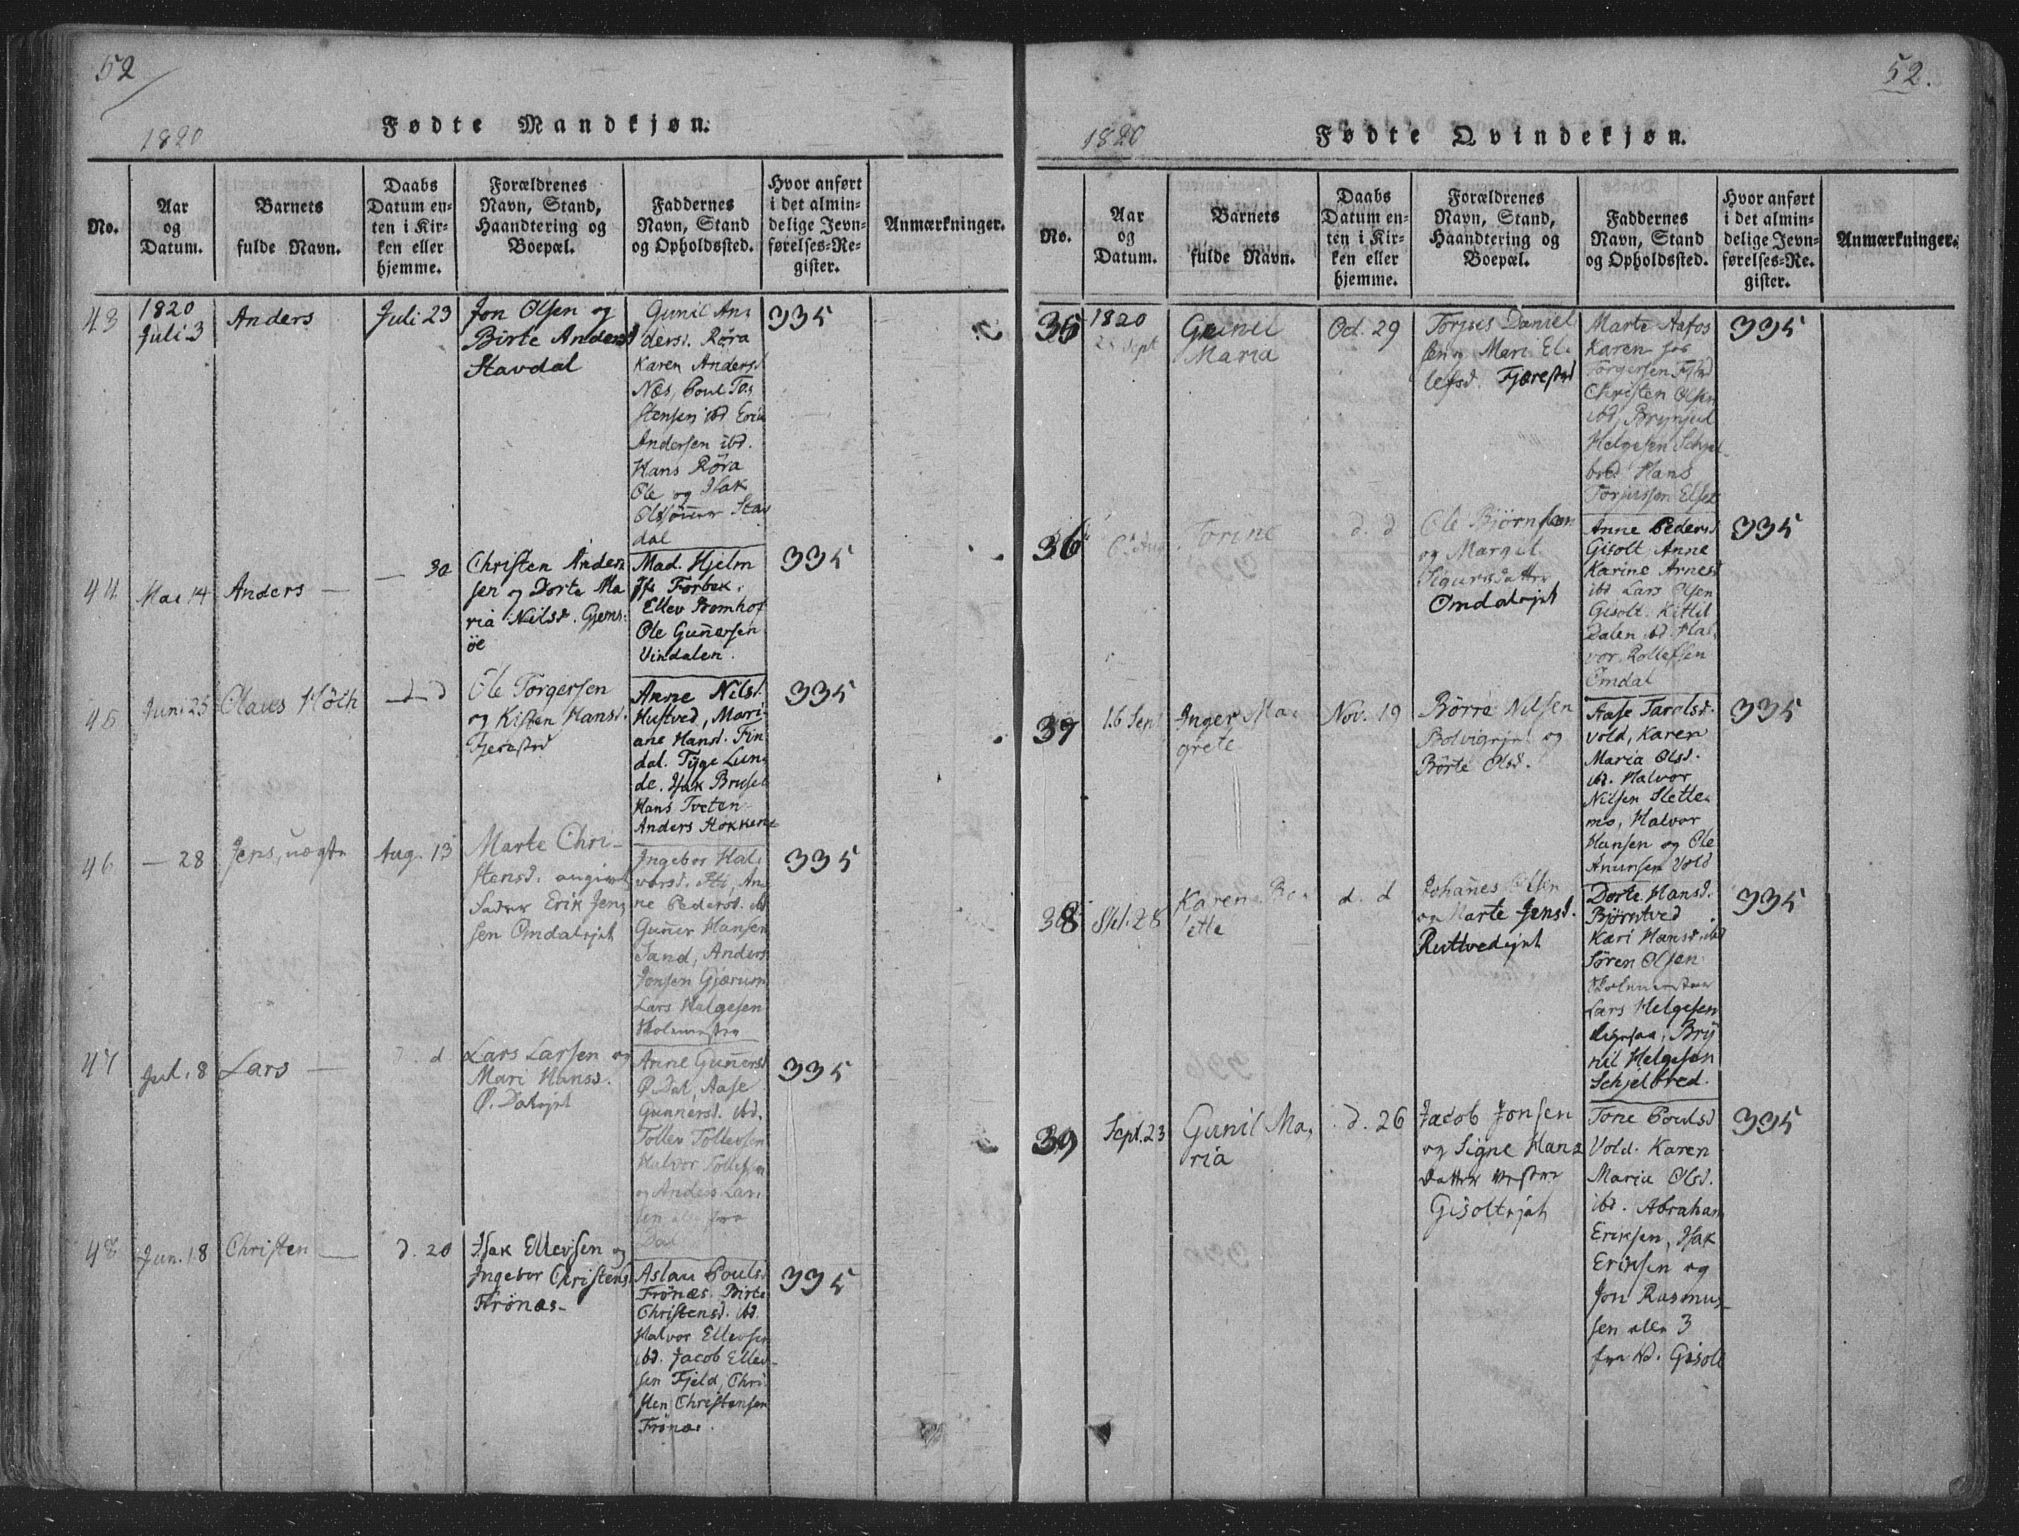 52
1820
Fødte Mandkjøn.
No.
Aar
og
Datum.
Barnets
fulde Navn.
Daabs
Datum en-
ten i Kir-
ken eller
hjemme.
Forældrenes
Navn, Stand,
Haandtering og
Boepæl.
Faddernes
Navn, Stand
og Opholdssted.
Hvor anført
i det almin-
delige Jevn-
førelses-Re-
gister.
Anmærkninger.
43
1820
Juli 3
Anders
Juli 23
Jon Olsen og
Birte Andersd
Stavdal
Gunil An,
dersd. Røra
Karen Andersd
Næs, Poul To,
stensen ibd Erik
Andersen ibd.
Hans Røra
Ole og Isak
Olssønner Stav
dal
335
44
Mai 14
Anders —
— 30
Christen Ander
sen og Dorte Ma
ria Nilsd. Gjems,
øe
Mad. Hjelm
Jfr Forbek,
Ellev Bomhof
Ole Gunersen
Vindalen.
335
45
Juni 25
Olaus Höih
— d — d
Ole Torgersen
og Kisten Hansd.
Fjerestrd
Anne Nilsd.
Hustved, Mari
ane Hansd. Fin
dal. Tyge Lun,
de. Isak Brusel
Hans Tveten
Anders Stokken
335
46
— 28
Jens, uægte
Aug. 13
Marte Chri-
stensd. angivet
Fader Erik Jen,
sen Omdalsejet
Ingebor Hal,
vorsd. An,
ne Pedersd. ibd
Guner Hansen
Sand, Anders
Jonsen Gjærum
Lars Halgesen
335
47
Jul. 8
Lars —
d. d.
Lars Larsen og
Mari Hansd.
Ø. Dalsejet
Anne Gunersd
Ø. Dal, Aase
Gunnersd. ibd.
Tollev Tollevsen
Halvor Tollefsen
og Anders Lar,
sen alle fra
Dal
335
48
Jun. 18
Christen —
d. 20
Isak Ellevsen og
Ingebor Christensd
Frönæs-
Aslau Poulsd
Frönæs. Birte
Christensd. ibd.
Halvor Ellevsen
ibd. Jacob Ellev-
sen Fjeld, Chri
sten Christensen
Frönæs.
335
52.
1820
Fødte Qvindekjøn.
No.
Aar
og
Datum.
Barnets
fulde Navn.
Daabs
Datum en-
ten i Kir-
ken eller
hjemme.
Forældrenes
Navn, Stand,
Haandtering og
Boepæl.
Faddernes
Navn, Stand
og Opholdssted.
Hvor anført
i det almin-
delige Jevn-
førelses-Re-
gister.
Anmærkninger.
35
1820
Sept
Gunil
Maria
Oct. 29
Torjus Daniel
sen og Mari El,
lefsd. Fjærestrd
Marte Aafos
Karen
Torgersen
Christen Olsen
ibd, Brynjul
Helgesen Schjel-
bred Hans
Torjussen Elset
335
36
6 Aug
Torine
d. d
Ole Björnsen
og Margit
Sigursdatter
Omdalsejet
Anne Pedersd
Gisolt Anne
Karine Arnesd
ibd Lars Olsen
Gisolt. Kittil
Dalen ibd. Hal,
vor Rollefsen
Omdal
335
37
16 Sept
Inger Ma,
grete
Nov. 19
Börre Nilsen
Bolvigejet og
Börte Olsd.
Aase Taralsd.
Vold, Karen
Maria Olsd.
ibd. Halvor
Nilsen Slette,
mo, Halvor
Hansen og Ole
Anunsen Vold
335
38
Oct. 28
Karen Bo,
lette
d. d
Johanes Olsen
og Marte Jensd.
Ruttvedejet
Dorte Hansd.
Björntved
Kari Hansd. ibd
Sören Olsen
Lars Helgesen
Bry
nil Helgesen
Schjelbred.
335
39
Sept. 23
Gunil Ma,
ria
d. 26
Jacob Jonsen
og Signe Hans
Datter Vestre
Gisoltejet
Tone Poulsd
Vold. Karen
Maria Olsd.
ibd. Abraham
Eriksen, Isak
Eriksen og
Jon Rasmus-
sen alle 3
fra Nd. Gisolt
335